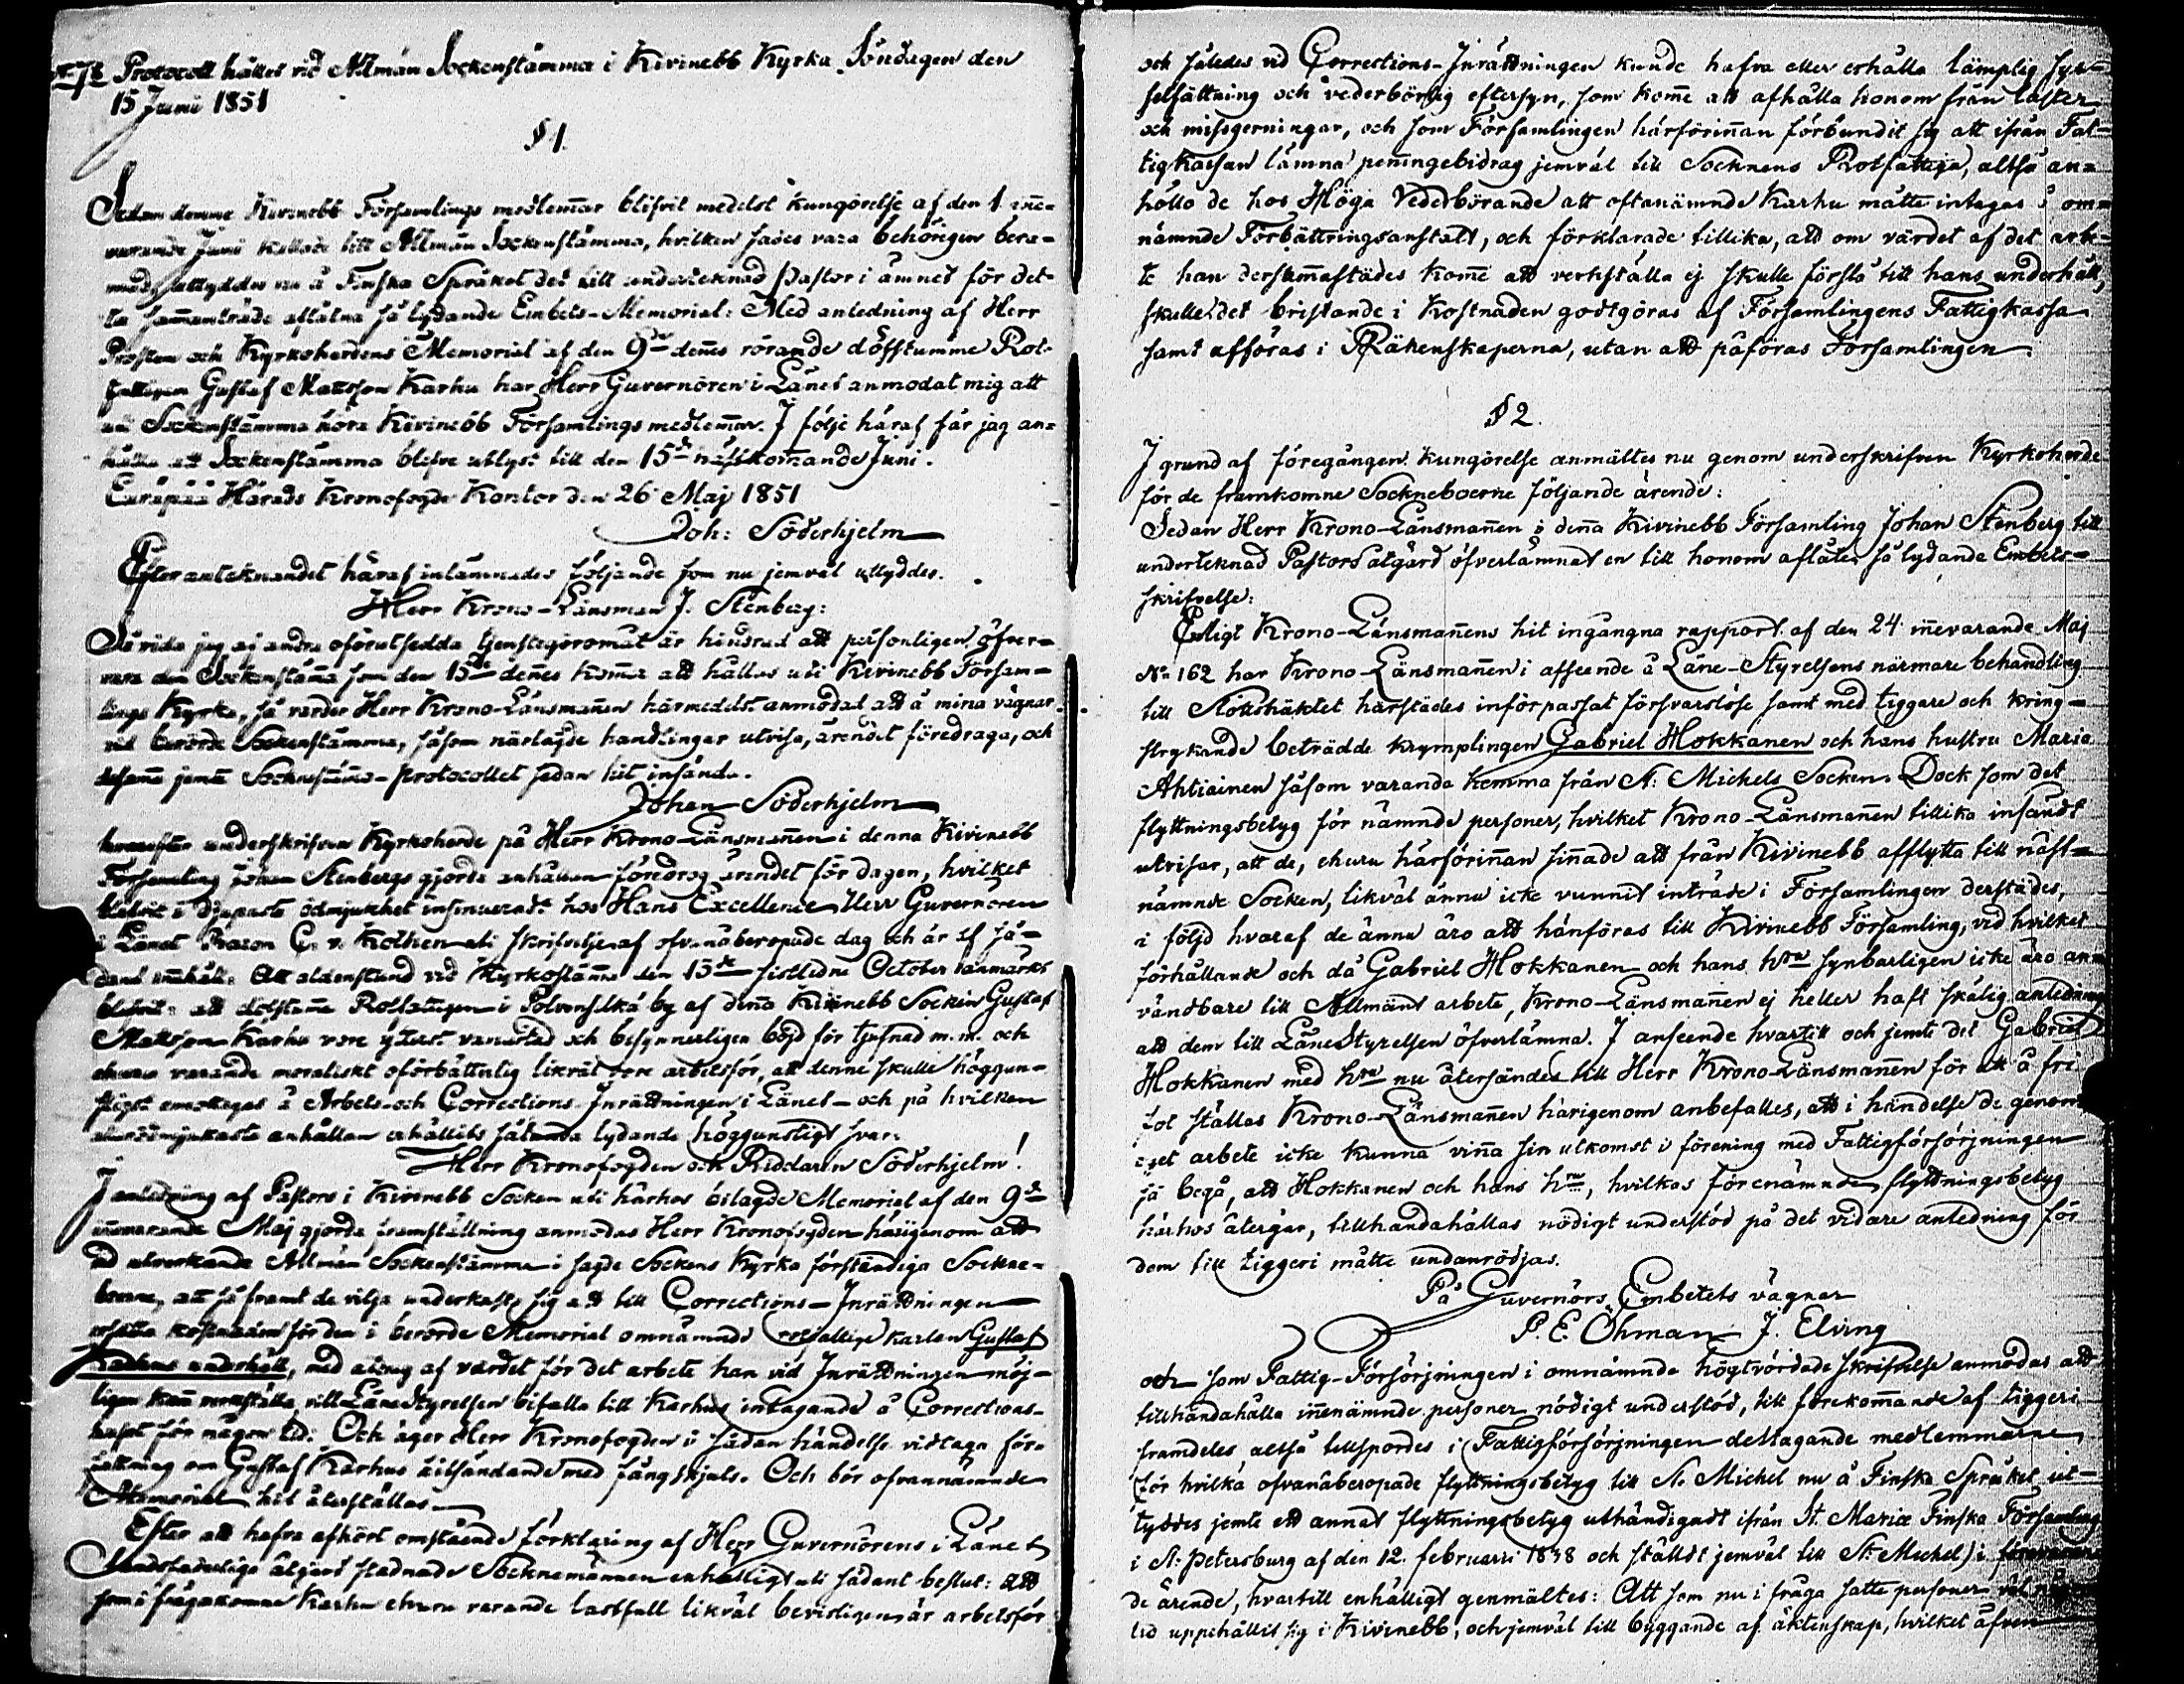 Protocoll hållet vid Allmän Sockenstämma i Kivinebb Kyrka Söndagen den
15 Junii 1851
§ 1.
Sedan denne Kivinebb Församlings medlem̄ar blifvit medelst kungörelse af den 1 in̄e-
varande Junii kallade till Allmän Sockenstämma, hvilken sades vara behörigen bera-
mad, upplyddes nu å Finska Språket det till undertecknad Pastor i ämnet för det-
ta sam̄anträde aflåtna så lydande Embets-Memorial: Med anledning af Herr
Prosten och Kyrkoherdens Memorial af den 9de den̄es rörande döfstumme Rot-
fattigen Gustaf Mattsson Karhu har Herr Guvernören i Länet anmodat mig att
uti Sockenstämma höra Kivinebb Församlings medlem̄ar. I följe häraf får jag an-
hålla att Sockenstämma blifve utlyst till den 15de nästkom̄ande Juni.
Euräpää Härads Kronofogde Kontor den 26 Maj 1851
Joh: Söderhjelm
Efter antecknandet häraf inlämnades följande som nu jemväl utlyddes.
Herr Krono-Länsman J. Stenberg:
Såvida jag af andra oförutsedda tjenstegöromål är hindrad att personligen öfver-
vara den Sockenstäm̄a som den 15de den̄es kom̄a att hållas uti Kivinebb Försam-
lings Kyrka, så varder Herr Krono-Länsman̄en härmedelst anmodad att å mina vägnar
vid berörde Sockenstämma, såsom närlagde handlingar utvisa, ärendet föredraga, och
desam̄a jemte Sockenstäm̄o-protocollet sedan hit insända.
Johan Söderhjelm
hvarefter underskrifven Kyrkoherde på Herr Krono-Länsman̄en i denna Kivinebb
Församling Johan Stenbergs gjorde anhållan föredrog ärendet för dagen, hvilket
blifvit i djupaste ödmjukhet insinueradt hos Hans Excellence Herr Guvernören
i Länet Baron C. v. Kothen uti skrifvelse af ofvanåberopade dag och är af så-
dant in̄ehåll: Att aldenstund vid Kyrkostäm̄a den 15de sistledne October anmärkt
blifvit: att döfstum̄e Rotfattigen i Polvenselkä by af den̄a Kivinebb Socken Gustaf
Mattsson Karhu vore ytterst vanartad och besynnerligen böjd för tjufnad m. m. och
ehuru varande moraliskt oförbätterlig likväl vore arbetsför, att denne skulle höggun-
stigst emottagas å Arbets- och Corrections-Inrättningen i Länet - och på hvilken
ödmjukaste anhållan erhållits sålunda lydande höggunstigt svar:
Herr Kronofogden och Riddaren Söderhjelm!
I anledning af Pastors i Kivinebb Socken uti härhos bilagde Memorial af den 9de
in̄evarande Maj gjorda framställning anmodas Herr Kronofogden härigenom att
vid utverkande Allmän Sockenstämma i sagde Sockens Kyrka förständiga Sockne-
boerne, att så framt de vilja underkasta sig att till Corrections-Inrättningen
ersätta kostnaden för den i berörde Memorial omnämnde rotfattige karlen Gustaf
Karhus underhåll, med afdrag af värdet för det arbete han vid Inrättningen möj-
ligen kan̄ verkställa, vill LäneStyrelsen bifalla till Karhus intagande å Corrections-
huset för någon tid: Och äger Herr Kronofogden i sådan händelse vidtaga för-
fattning om Gustaf Karhus hitsändande med fångskjuts. Och bör ofvannämnde
Memorial hit återställas.
Efter att hafva afhört omstående förklaring af Herr Guvernörens i Länet
Landsfaderliga åtgärd stadnade Socknemännen enhälligt uti sådant beslut: att
som i frågakomne Karhu ehuru varande lastfull likväl bevisligen är arbetsför
och således vid Corrections-Inrättningen kunde hafva eller erhålla lämplig sys-
selsättning och vederbörlig eftersyn, som kom̄e att afhålla honom från laster
och missgerningar, och som Församlingen härförin̄an förbundit sig att ifrån Fat-
tigkassan lämna pen̄ingebidrag jemväl till Socknens Rotfattiga, altså an-
höllo de hos Höga Vederbörande att oftanämnde Karhu måtte intagas å om-
nämnde Förbättringsanstalt, och förklarade tillika, att om värdet af det arbe-
te han dersam̄astädes kom̄e att verkställa ej skulle förslå till hans underhåll,
skulle det bristande i kostnaden godtgöras af Församlingens Fattigkassa
samt afföras i Räkenskaperna, utan att påföras Församlingen.
§ 2.
I grund af föregången kungörelse anmältes nu genom underskrifven Kyrkoherde
för de framkomne Sockneboerne följande ärende:
Sedan Herr Krono-Länsman̄en i den̄a Kivinebb Församling Johan Stenberg till
undertecknad Pastors åtgärd öfverlämnat en till honom aflåten så lydande Embets-
skrifvelse:
Enligt Krono-Länsman̄ens hit ingångna rapport af den 24 in̄evarande Maj
No 162 har Krono-Länsman̄en i afseende å Läne-Styrelsens närmare behandling
till Slottshäktet härstädes införpassat försvarslöse samt med tiggare och kring-
strykande beträdde krymplingen Gabriel Hokkanen och hans hustru Maria
Ahtiainen såsom varande hemma från St. Michels Socken. Dock som det
flyttningsbetyg för nämnde personer, hvilket Krono-Länsman̄en tillika insändt
utvisar, att de, ehuru härförin̄an sin̄ade att från Kivinebb afflytta till näst-
nämnde Socken, likväl ännu icke vunnit inträde i Församlingen derstädes,
i följd hvaraf de ännu äro att hänföras till Kivinebb Församling, vid hvilket
förhållande och då Gabriel Hokkanen och hans hru synbarligen icke äro an-
vändbare till Allmänt arbete, Krono-Länsman̄en ej heller haft skälig anledning
att dem till LäneStyrelsen öfverlämna. I anseende hvartill och jemte det Gabriel
Hokkanen med hru nu återsändes till Herr Krono-Länsman̄en för att å fri
fot ställas Krono-Länsman̄en härigenom anbefalles, att i händelse de genom
eget arbete icke kunna vin̄a sin utkomst i förening med Fattigförsörjningen
så begå, att Hokkanen och hans hru, hvilkas förenämnde flyttningsbetyg
härhos återgår, tillhandahållas nödigt understöd på det vidare anledning för
dem till tiggeri måtte undanrödjas.
På Guvernörs Embetets vägnar
P. E. Öhman J. Elving
och som Fattig-Försörjningen i omnämnde högtvördade skrifvelse anmodas att
tillhandahålla in̄enämnde personer nödigt understöd, till förekom̄ande af tiggeri
framdeles altså tillspordes i Fattigförsörjningen deltagande medlemmarne
(för hvilka ofvanåberopade flyttningsbetyg till St. Michel nu å Finska Språket ut-
tyddes jemte ett annat flyttningsbetyg uthändigadt ifrån St. Mariæ Finska Församling
i St. Petersburg af den 12. februarii 1838 och ställdt jemväl till St. Michel) i
de ärende, hvartill enhälligt genmältes: Att som nu i fråga satte personer väl
tid uppehållit sig i Kivinebb, och jemväl till byggande af äktenskap, hvilket äfven